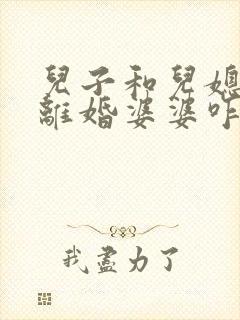 兒子和兒媳
離婚婆婆咋
我盡力了